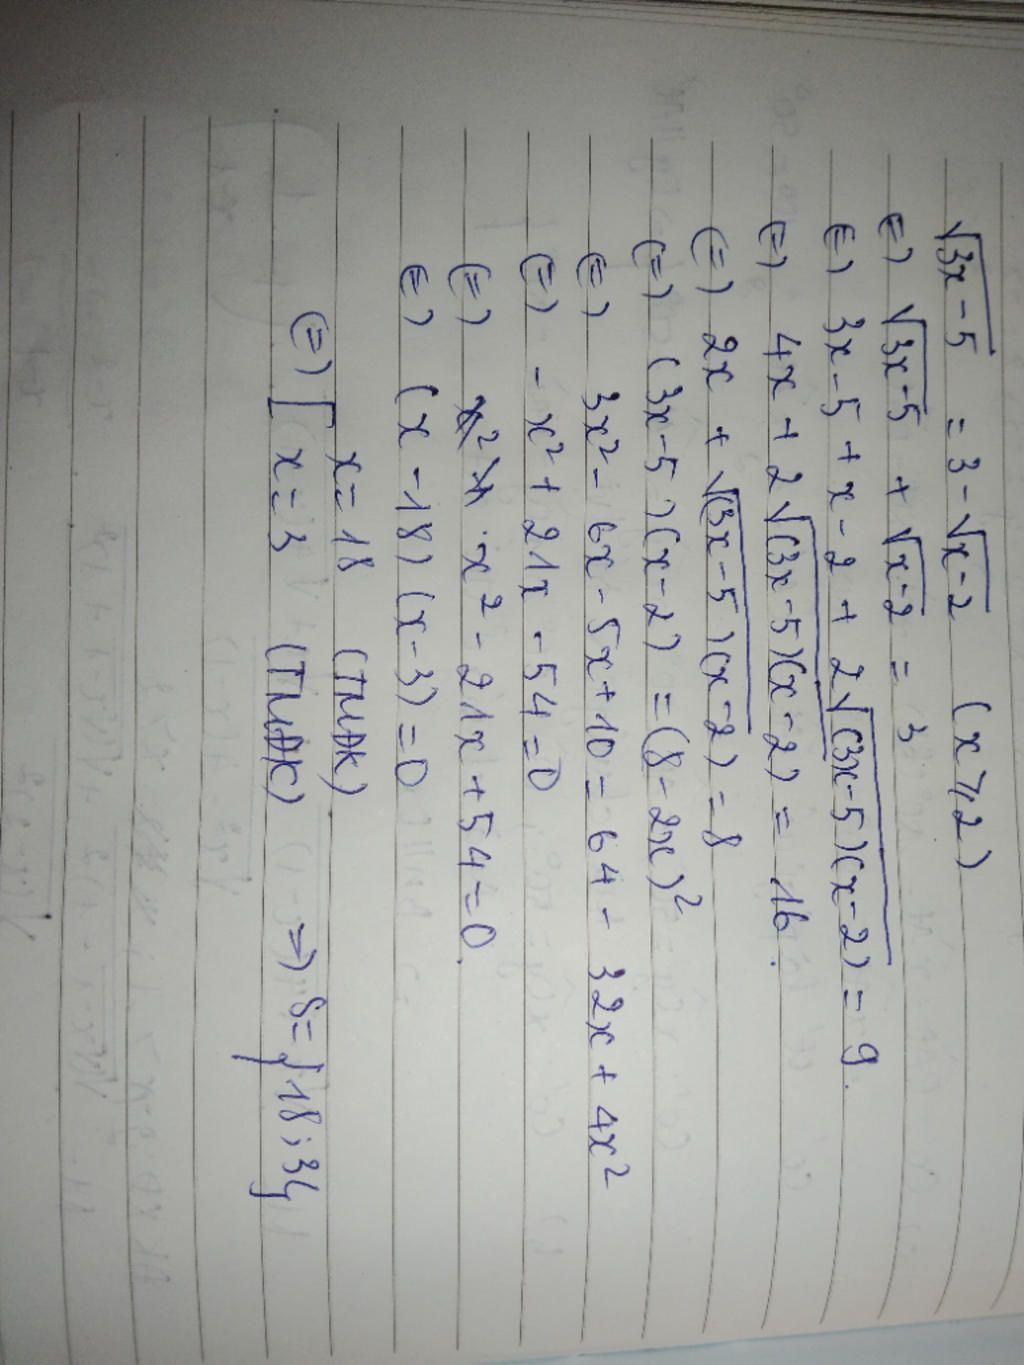 √(3x-5) = 3 - √(x-2) (x ≥ 2)
(=) √(3x-5) + √(x-2) = 3
(=) 3x-5 + x-2 + 2√((3x-5)(x-2)) = 9.
(=) 4x + 2√((3x-5)(x-2)) = 16.
(=) 2x + √((3x-5)(x-2)) = 8
(=) (3x-5)(x-2) = (8-2x)²
(=) 3x² - 6x - 5x + 10 = 64 - 32x + 4x²
(=) -x² + 21x - 54 = 0
(=) x² - 21x + 54 = 0.
(=) (x-18)(x-3) = 0
(=) [ x = 18 (TMĐK)
x = 3 (TMĐK) => S = {18; 3}